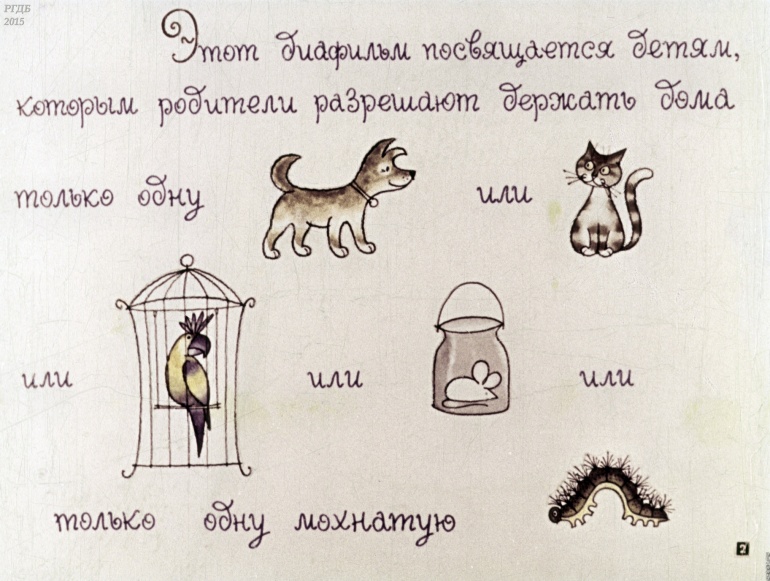 РГДБ
2015
Этот диафильм посвящается детям,
которым родители разрешают держать дома
только одну или
или или или
только одну мохнатую
2